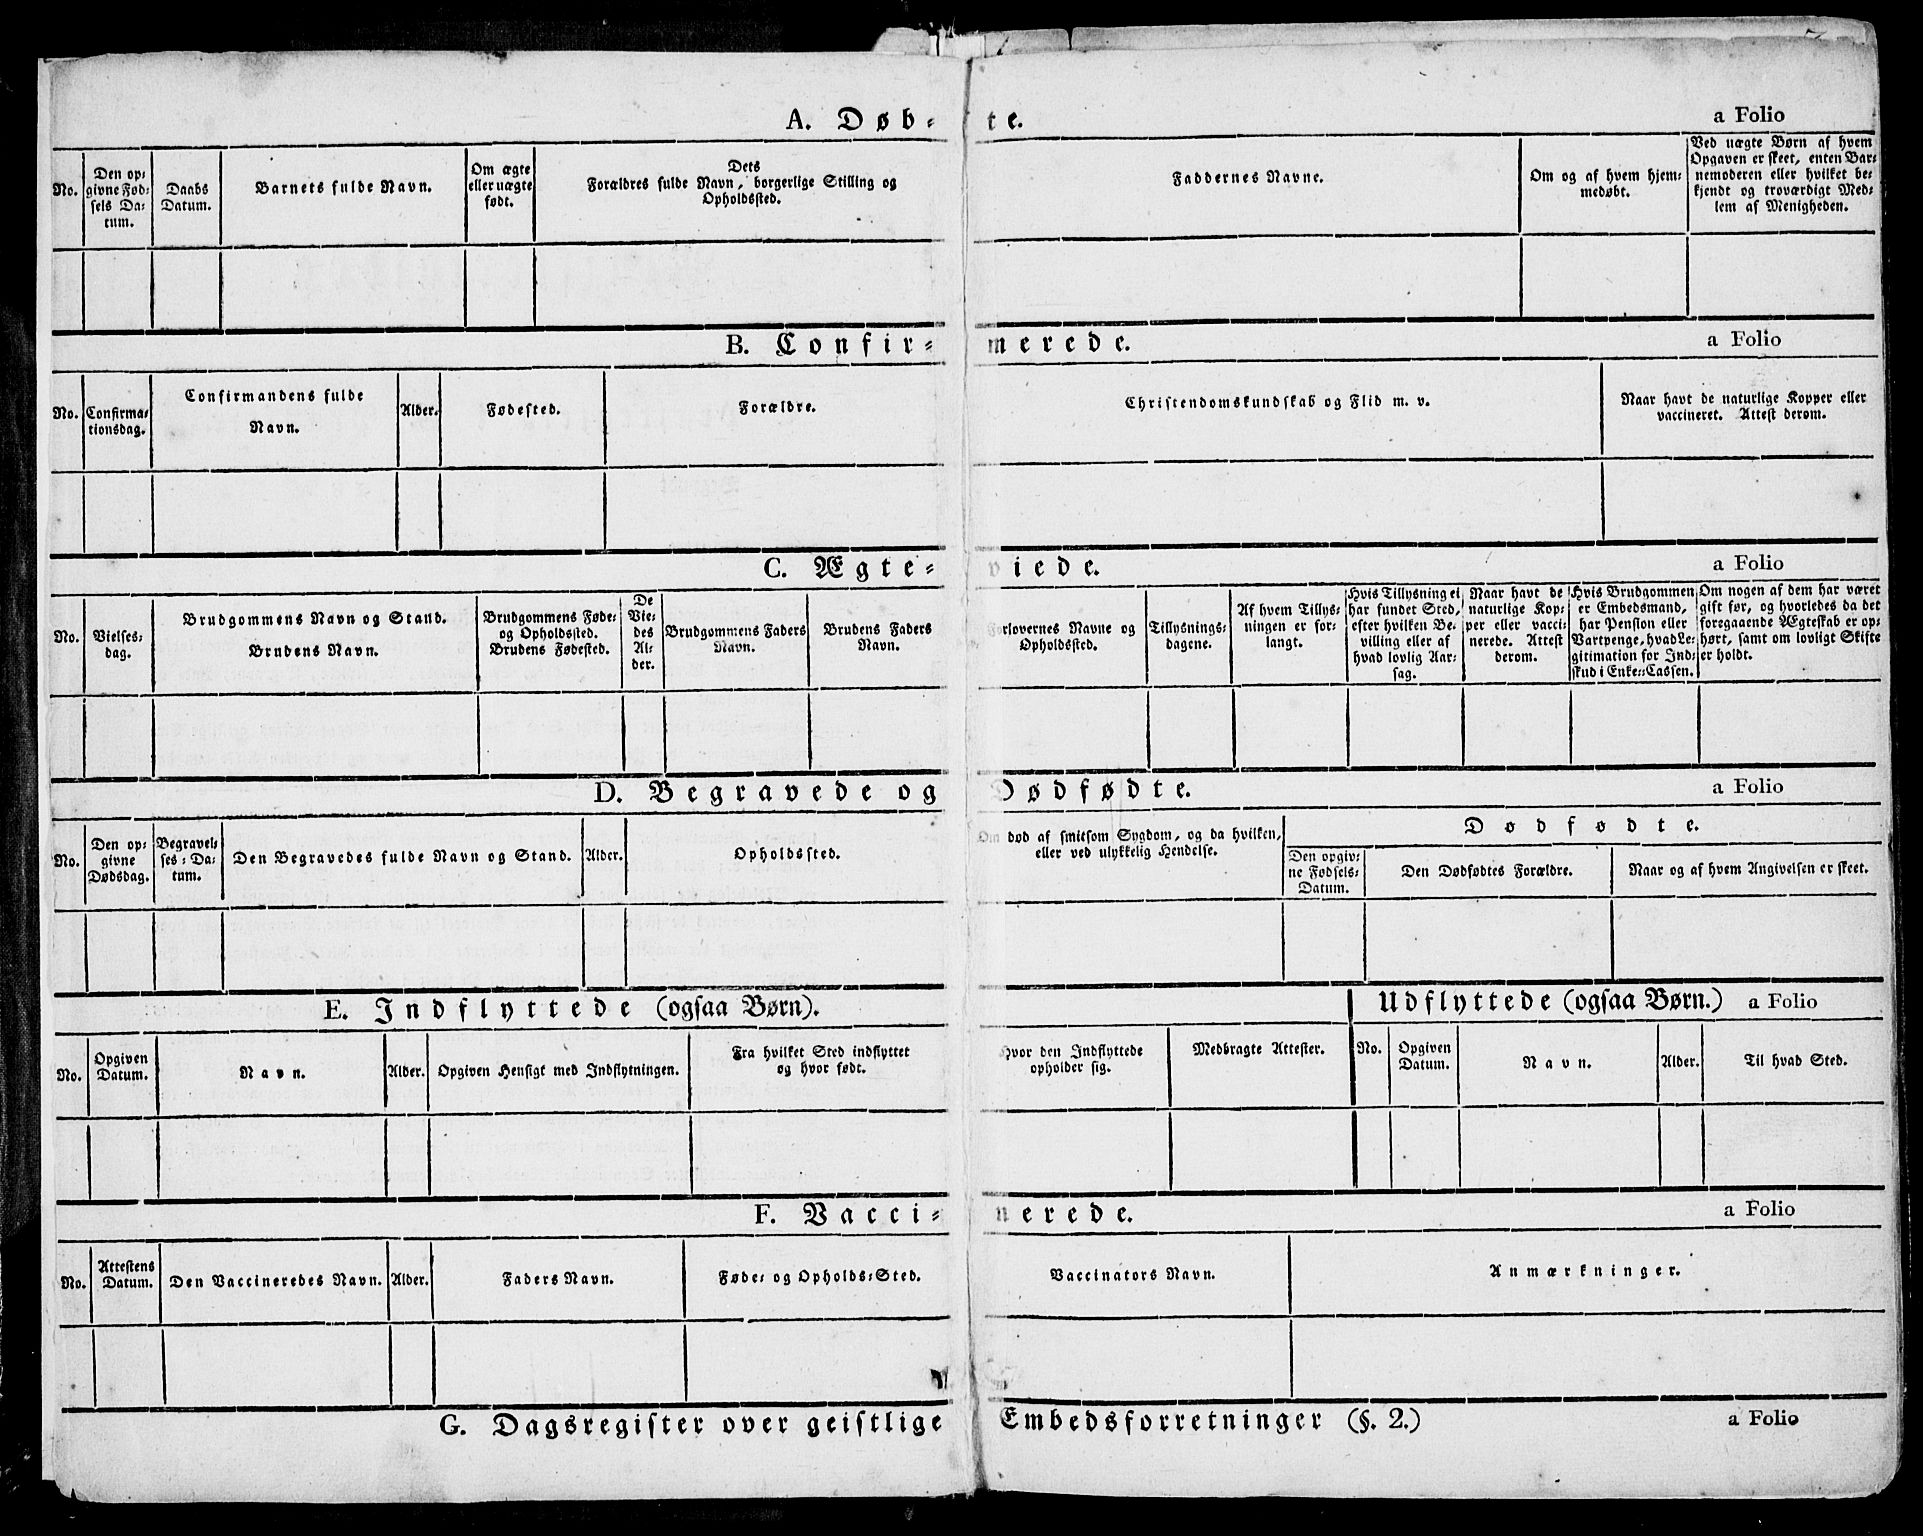 A. Døb=te. a Folio
No.
Den op=
givne Fød=
sels Da=
tum.
Daabs
Datum.
Barnets fulde Navn.
Om ægte
eller uægte
født.
Dets
Forældres fulde Navn, borgerlige Stilling og
Opholdssted.
Faddernes Navne.
Om og af hvem hjem=
medøbt.
Ved uægte Børn af hvem
Opgaven er skeet, enten Bar=
nemoderen eller hvilket be=
kjendt og troværdigt Med=
lem af Menigheden.
B. Confir=merede. a Folio
No.
Confirma=
tionsdag.
Confirmandens fulde
Navn.
Alder.
Fødested.
Forældre.
Christendomskundskab og Flid m. v.
Naar havt de naturlige Kopper eller
vaccineret. Attest derom.
C. Ægte=viede. a Folio
No.
Vielses=
dag.
Brudgommens Navn og Stand.
Brudens Navn.
Brudgommens Føde=
og Opholdssted.
Brudens Fødested.
De
Vie=
des
Al=
der.
Brudgommens Faders
Navn.
Brudens Faders
Navn.
Forlovernes Navne og
Opholdssted.
Tillysnings=
dagene.
Af hvem Tillys=
ningen er for=
langt.
Hvis Tillysning ei
har fundet Sted,
efter hvilken Be=
villing eller af
hvad lovlig Aar=
sag.
Naar havt de
naturlige Kop=
per eller vacci=
nerede. Attest
derom.
Hvis Brudgommen
er Embedsmand,
har Pension eller
Vartpenge, hvad Le=
gitimation for Ind=
skud i Enke=Cassen.
Om nogen af dem har været
gift før, og hvorledes da det
foregaaende Ægteskab er op=
hørt, samt om lovligt Skifte
er holdt.
D. Begravede og Dødfødte. a Folio
No.
Den op=
givne
Dødsdag.
Begravel=
ses=Da=
tum.
Den Begravedes fulde Navn og Stand.
Alder.
Opholdssted.
Om død af smitsom Sygdom, og da hvilken,
eller ved ulykkelig Hendelse.
Dødfødte.
Den opgiv=
ne Fødsels=
Datum.
Den Dødfødtes Forældre.
Naar og af hvem Angivelsen er skeet.
E. Indflyttede (ogsaa Børn).
Udflyttede (ogsaa Børn.) a Folio
No.
Opgiven
Datum.
Navn.
Alder.
Opgiven Hensigt med Indflytningen.
Fra hvilket Sted indflyttet
og hvor født.
Hvor den Indflyttede
opholder sig.
Medbragte Attester.
No.
Opgiven
Datum.
Navn.
Alder.
Til hvad Sted.
F. Vacci=nerede. a Folio
No.
Attestens
Datum.
Den Vaccineredes Navn.
Alder.
Faders Navn.
Føde= og Opholds=Sted.
Vaccinators Navn.
Anmærkninger.
G. Dagsregister over geistlige Embedsforretninger (§. 2.) a Folio